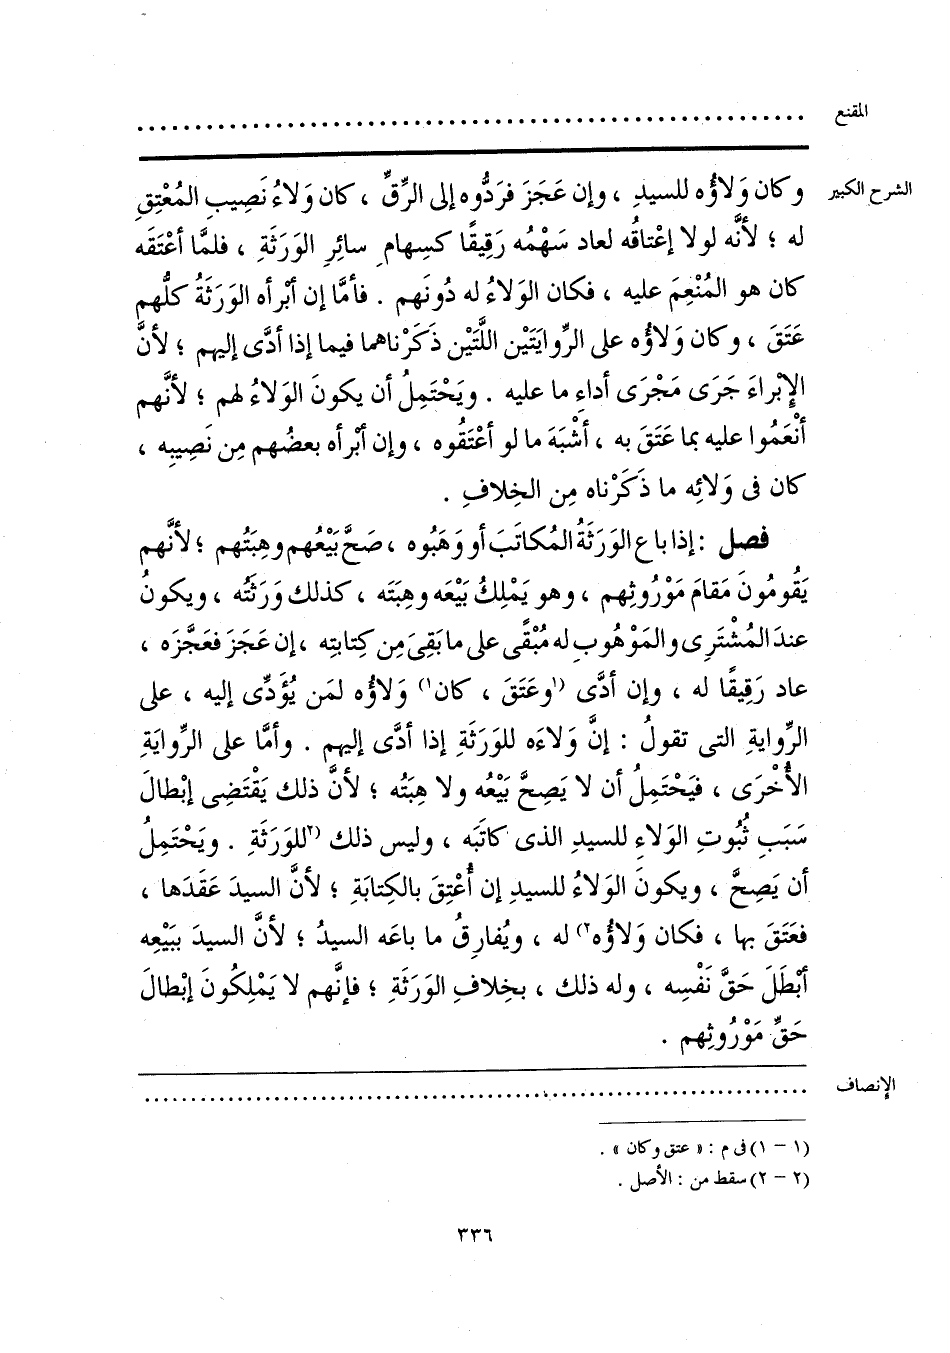 المقنع
................................................................
الشرح الكبير
وكان وَلاؤُه للسيدِ ، وإن عَجَزَ فرَدُّوه إلى الرِّقِّ ، كان وَلاءُ نَصِيبِ المُعْتِقِ
له ؛ لأنَّه لولا إعْتاقُه لعاد سَهْمُه رَقِيقًا كسِهامِ سائِرِ الوَرَثَةِ ، فلمَّا أعْتَقَه
كان هو المُنْعِمَ عليه ، فكان الوَلاءُ له دُونَهم . فأمَّا إن أبْرأه الوَرَثَةُ كلُّهم
عَتَقَ ، وكان وَلاؤُه على الرِّوايَتَيْن اللَّتَيْن ذَكَرْناهما فيما إذا أدَّى إليهم ؛ لأنَّ
الإِبْراءَ جَرَى مَجْرَى أداءِ ما عليه . ويَحْتَمِلُ أن يكونَ الوَلاءُ لهم ؛ لأنَّهم
أنْعَمُوا عليه بما عَتَقَ به ، أشْبَهَ ما لو أعْتَقُوه ، وإن أبْرأه بعضُهم مِن نَصِيبِه ،
كان فى وَلائِه ما ذَكَرْناه مِن الخِلافِ .
فصل : إذا باع الوَرَثَةُ المُكاتَبَ أو وَهَبُوه ، صَحَّ بَيْعُهم وهِبَتُهم ؛ لأنَّهم
يَقُومُونَ مَقامَ مَوْرُوثِهم ، وهو يَمْلِكُ بَيْعَه وهِبَتَه ، كذلك وَرَثَتُه ، ويكونُ
عندَ المُشْتَرِى والمَوْهُوبِ له مُبْقًى على ما بَقِىَ مِن كِتابتِه ، إن عَجَزَ فعَجَّزَه ،
عاد رَقِيقًا له ، وإن أدَّى (١وعَتَقَ ، كان١) وَلاؤُه لمَن يُؤَدِّى إليه ، على
الرِّوايةِ التى تقولُ : إنَّ وَلاءَه للوَرَثَةِ إذا أدَّى إليهم . وأمَّا على الرِّوايَةِ
الأُخْرَى ، فيَحْتَمِلُ أن لا يَصِحَّ بَيْعُه ولا هِبَتُه ؛ لأنَّ ذلك يَقْتَضِى إبْطالَ
سَبَبِ ثُبُوتِ الوَلاءِ للسيدِ الذى كاتَبَه ، وليس ذلك (٢للوَرَثَةِ . ويَحْتَمِلُ
أن يَصِحَّ ، ويكونَ الوَلاءُ للسيدِ إن أُعْتِقَ بالكِتابَةِ ؛ لأنَّ السيدَ عَقَدَها ،
فعَتَقَ بها ، فكان وَلاؤُه٢) له ، ويُفارِقُ ما باعَه السيدُ ؛ لأنَّ السيدَ ببَيْعِه
أبْطَلَ حَقَّ نَفْسِه ، وله ذلك ، بخِلافِ الوَرَثَةِ ؛ فإنَّهم لا يَمْلِكُونَ إبْطالَ
حَقِّ مَوْرُوثِهم .
الإنصاف
................................................................
(١ - ١) فى م : « عتق وكان » .
(٢ - ٢) سقط من : الأصل .
٣٣٦